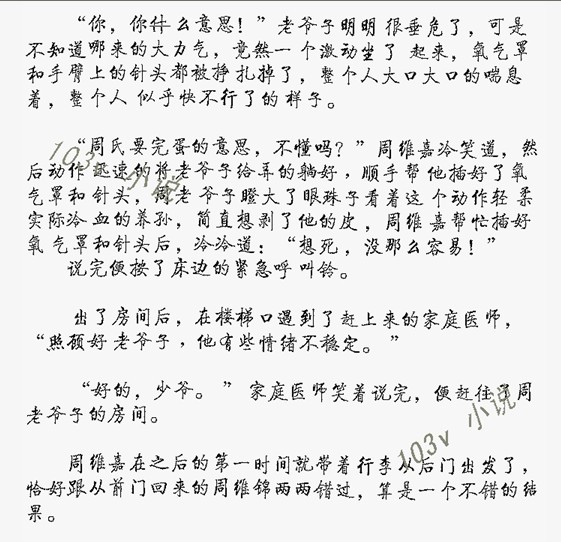 “你，你什么意思！”老爷子明明很垂危了，可是
不知道哪来的大力气，竟然一个激动坐了起来，氧气罩
和手臂上的针头都被挣扎掉了，整个人大口大口的喘息
着，整个人似乎快不行了的样子。
“周氏要完蛋的意思，不懂吗？”周维嘉冷笑道，然
后动作迅速的将老爷子给弄的躺好，顺手帮他插好了氧
气罩和针头，周老爷子瞪大了眼珠子看着这个动作轻柔
实际冷血的养孙，简直想剥了他的皮，周维嘉帮忙插好
氧气罩和针头后，冷冷道：“想死，没那么容易！”
说完便按了床边的紧急呼叫铃。
出了房间后，在楼梯口遇到了赶上来的家庭医师，
“照顾好老爷子，他有些情绪不稳定。”
“好的，少爷。”家庭医师笑着说完，便赶往了周
老爷子的房间。
周维嘉在之后的第一时间就带着行李从后门出发了，
恰好跟从前门回来的周维锦两两错过，算是一个不错的结
果。
103v 小说
103v 小说